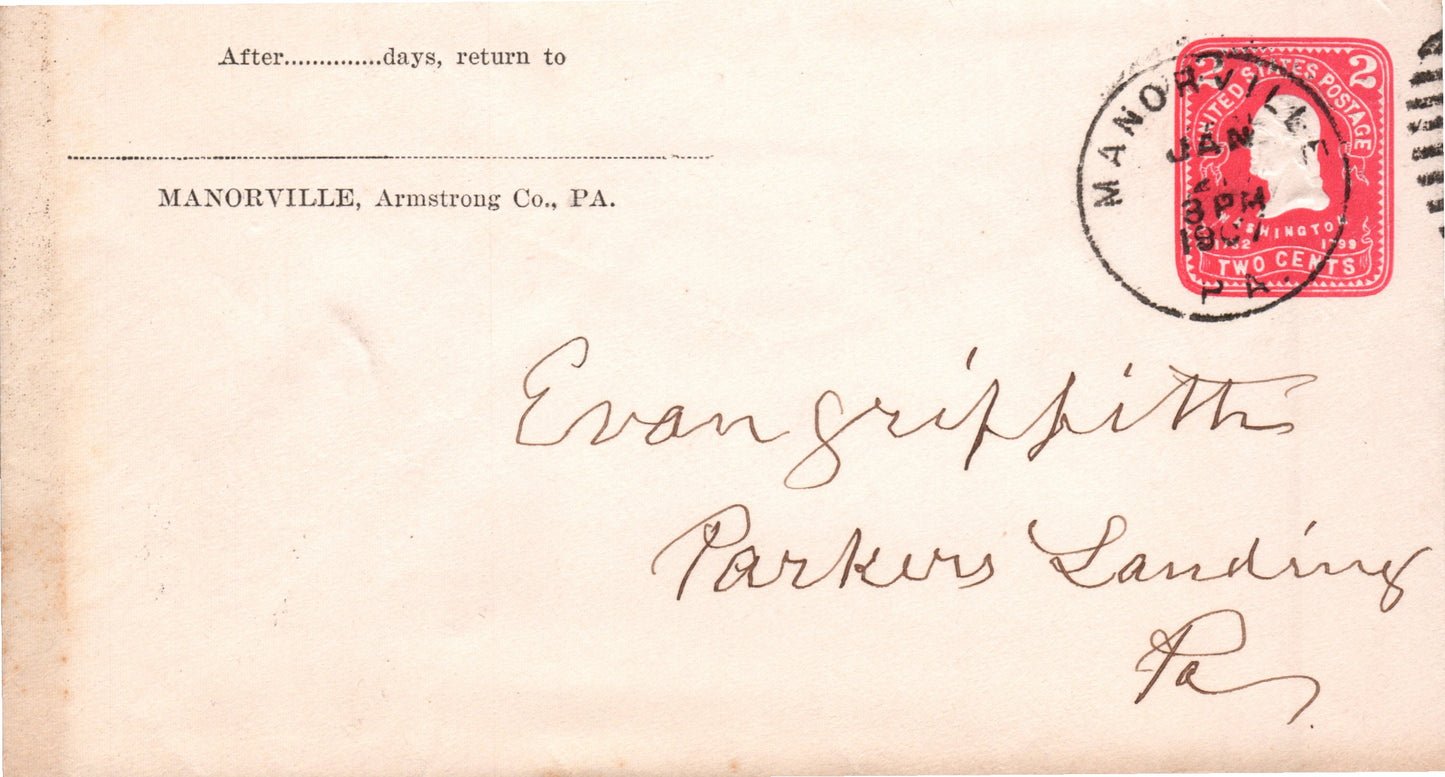 After..............days, return to
MANORVILLE, Armstrong Co., PA.
2 2
UNITED STATES POSTAGE
WASHINGTON
1732 1799
TWO CENTS
MANORVILLE
JAN
3 PM
1907
PA.
Evan griffith
Parkers Landing
Pa